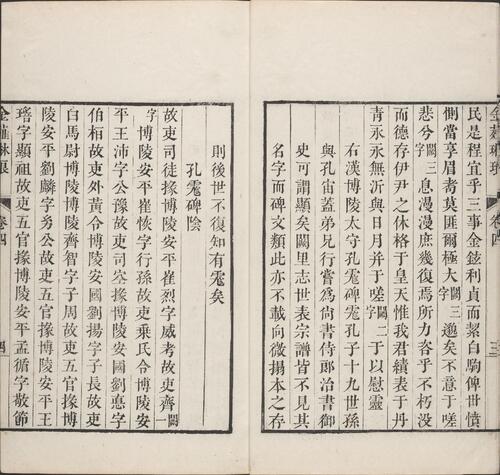 民是程宜乎三事金鉉利貞而絜白駒俾世憤
惻當享眉耈莫匪爾極大字闕三遨矣不意于嗟
悲兮字闕三息漫漫庶幾復焉所力咨乎不朽没
而德存伊尹之休格于皇天惟我君績表于丹
青永永無沂與日月并于嗟字闕二于以慰靈
右漢博陵太守孔彪碑彪孔子十九世孫
與孔宙蓋弟兄行嘗爲尙書侍郎治書御
史可謂顯矣闕里志世表宗譜皆不見其
名字而碑文類此亦不載向微搨本之存
金薤琳琅
卷四
三
則後世不復知有彪矣
孔彪碑陰
故吏司徒掾博陵安平崔烈字威考故吏齊一闕
字博陵安平崔恢字行孫故吏乘氏令博陵安
平王沛字公豫故吏司空掾博陵安國劉惪字
伯桓故吏外黃令博陵安國劉揚字子長故吏
白馬尉博陵博陵齊智字子周故吏五官掾博
陵安平劉麟字多公故吏五官掾博陵安平王
瑃字顯祖故吏五官掾博陵安平孟循字敬節
金薤琳琅
卷四
四